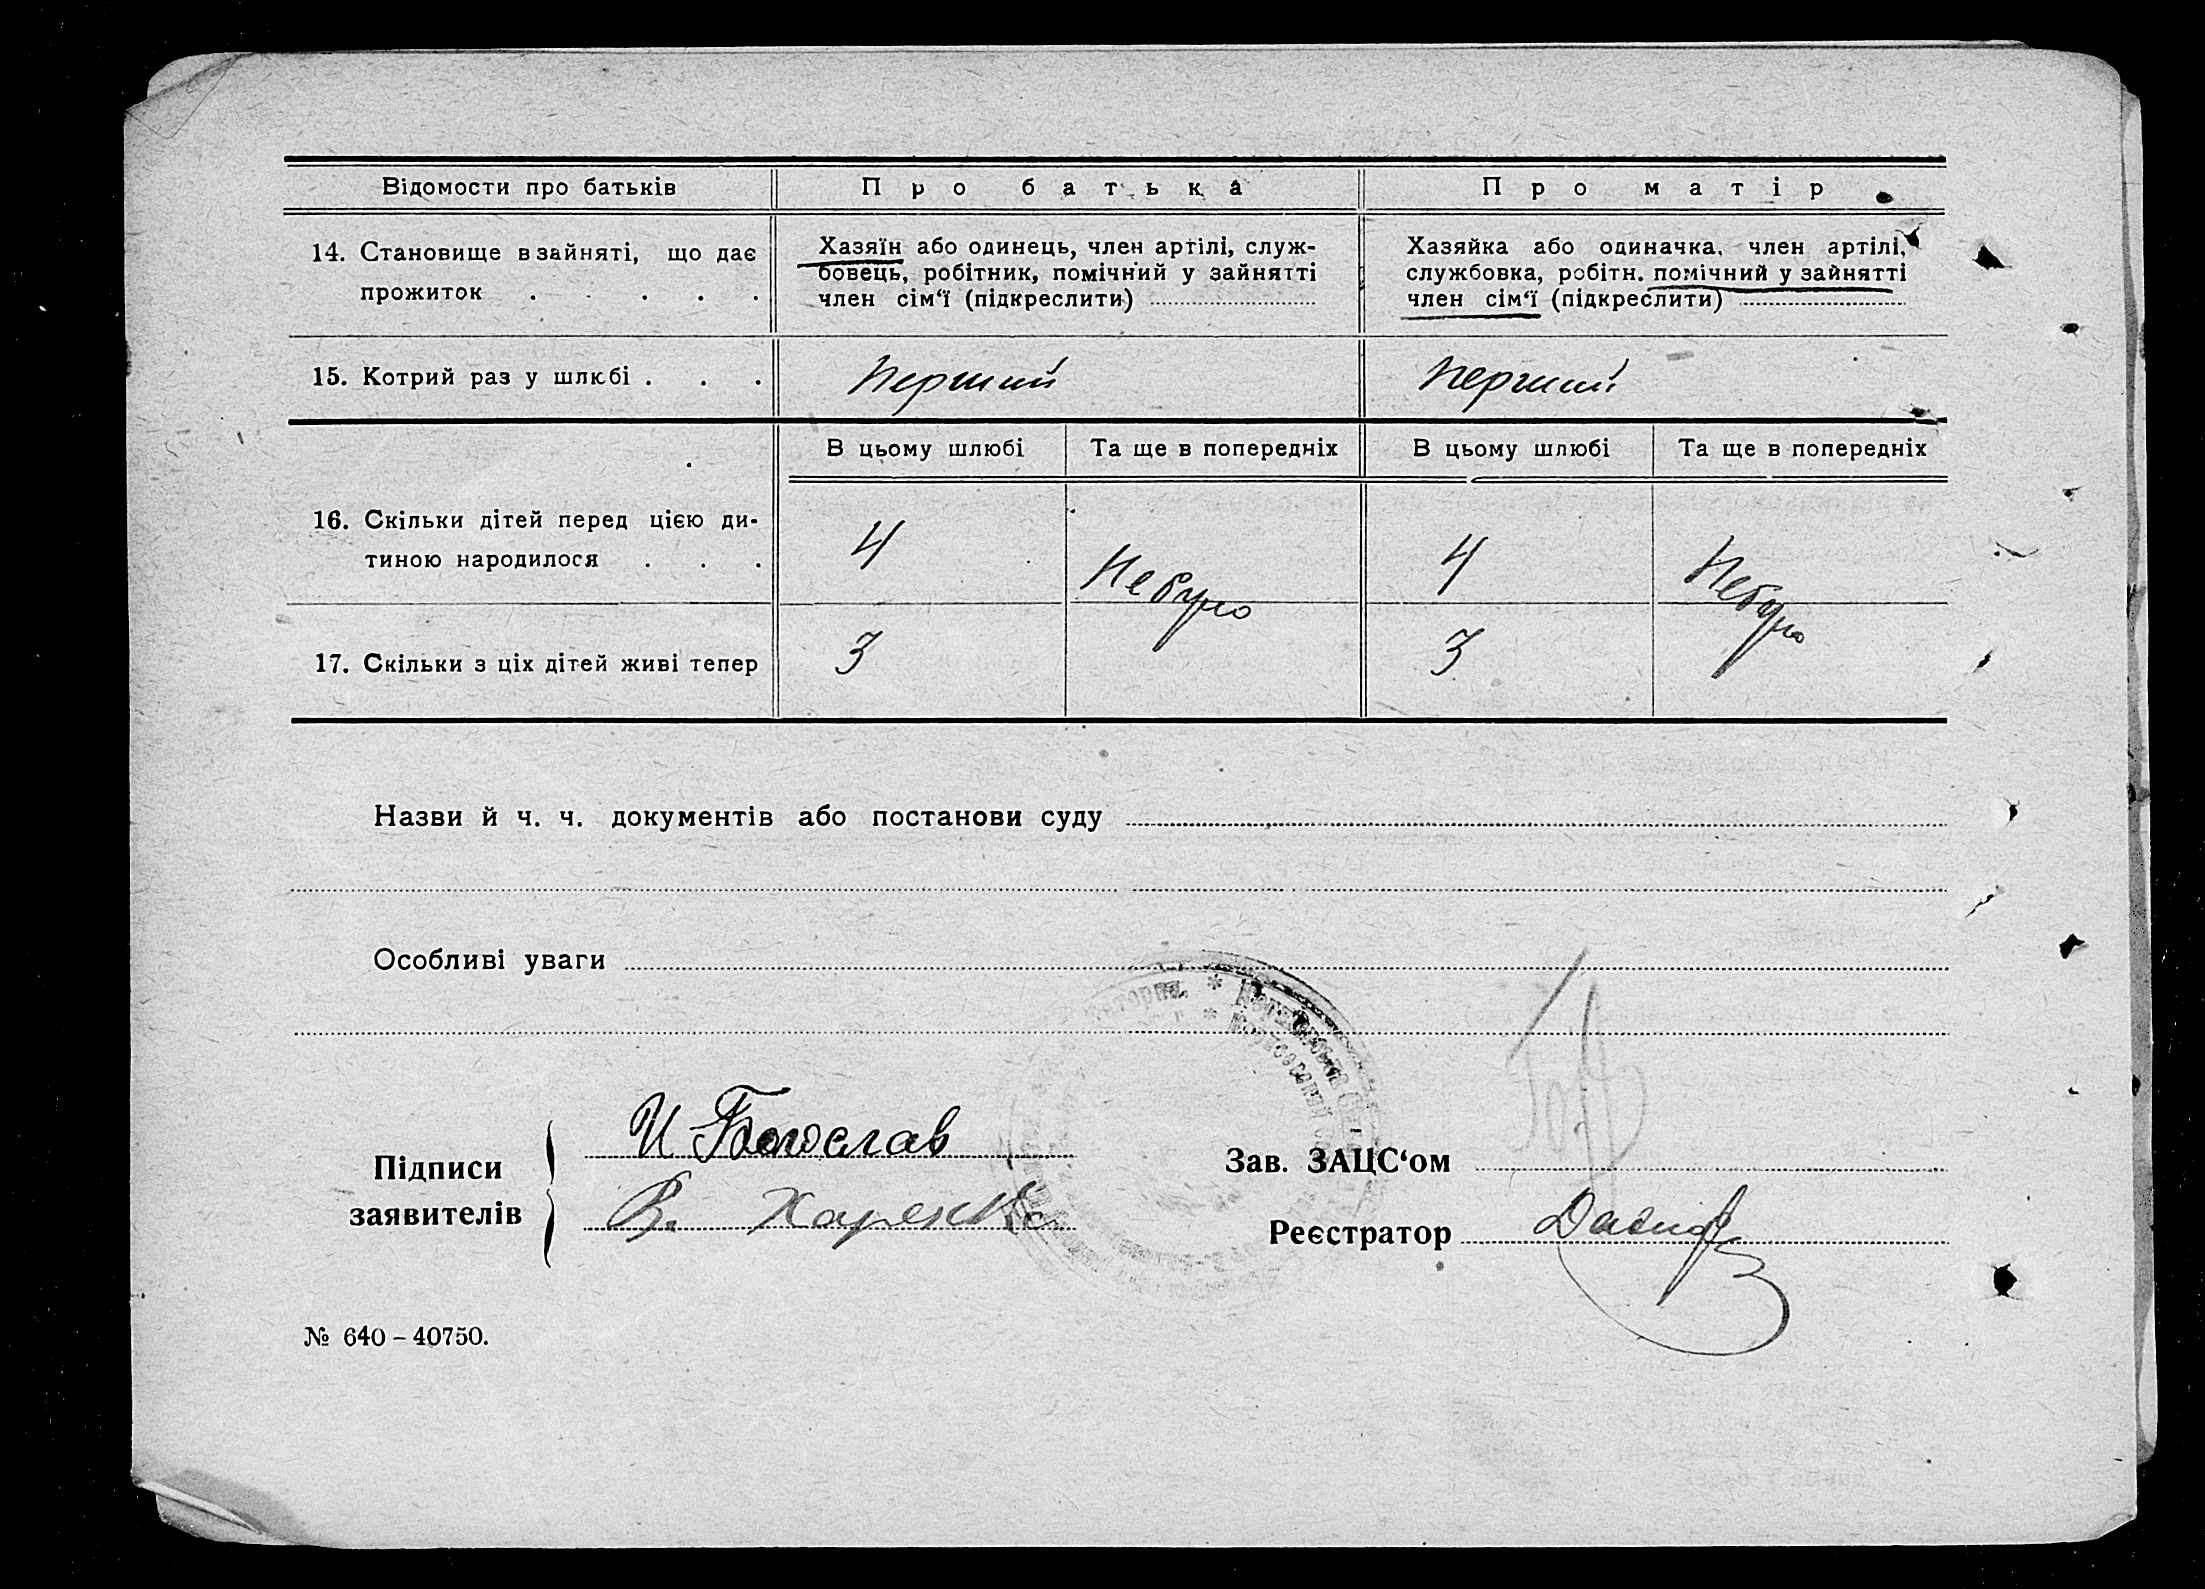 Відомости про батьків
Про батька
Про матір
14. Становище в зайняті, що дає
прожиток . . . . .
Хазяїн або одинець, член артілі, служ-
бовець, робітник, помічний у зайнятті
член сім‘ї (підкреслити)
Хазяйка або одиначка, член артілі,
службовка, робітн. помічний у зайнятті
член сім‘ї (підкреслити)
15. Котрий раз у шлюбі . . .
Перший
Перший
В цьому шлюбі
Та ще в попередніх
В цьому шлюбі
Та ще в попередніх
16. Скільки дітей перед цією ди-
тиною народилося . . .
4
Небуло
4
Небуло
17. Скільки з ціх дітей живі тепер
3
3
Назви й ч. ч. документів або постанови суду
Особливі уваги
Підписи
заявителів
И Богослав
В. Харенко
Зав. ЗАЦС‘ом
Реєстратор
№ 640 – 40750.